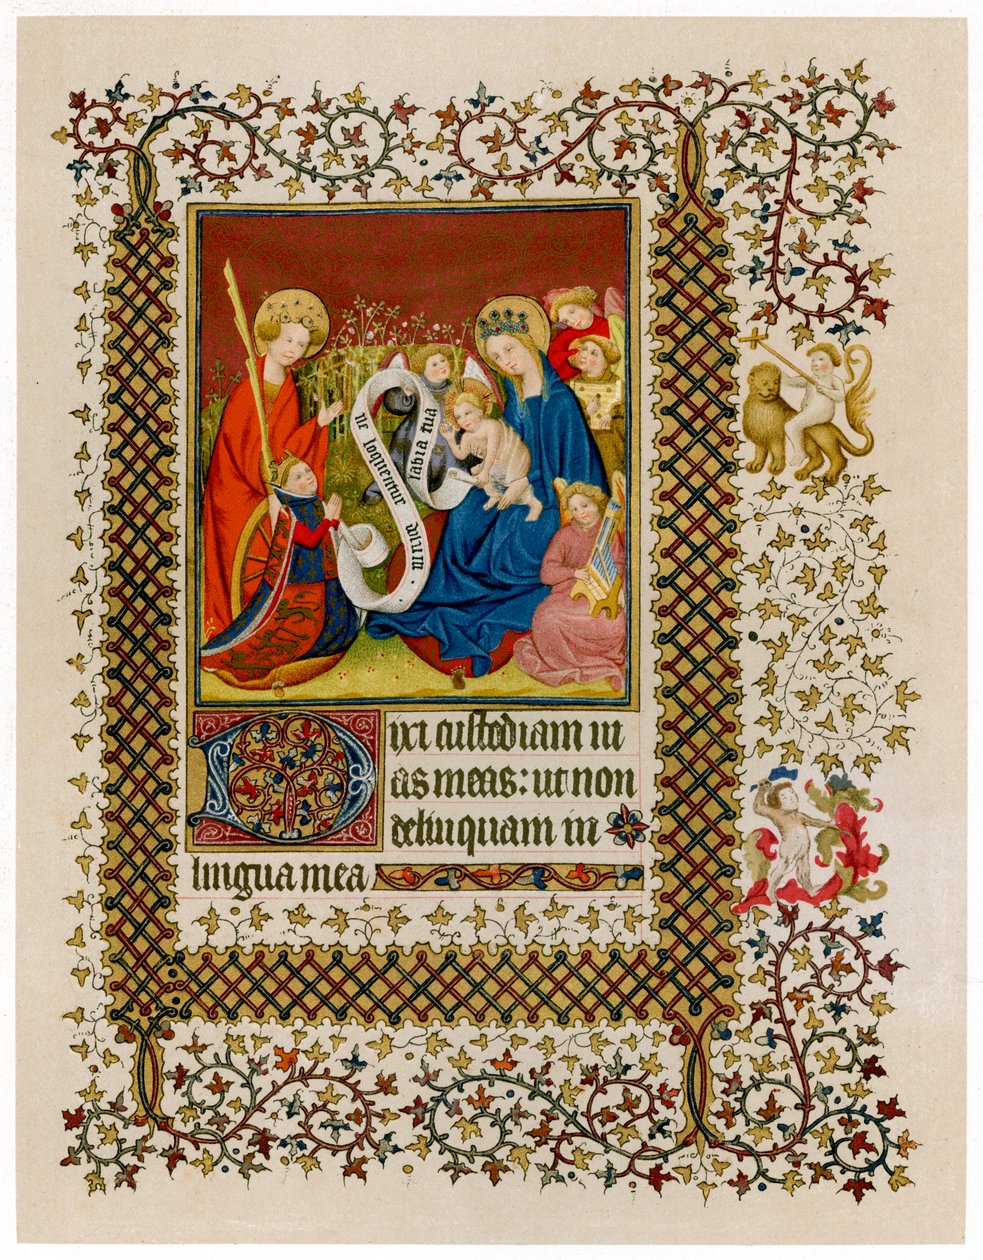 labia tua
ne loquentur
dolum
Dixi custodiam ui
as meas: ut non
delinquam in
lingua mea